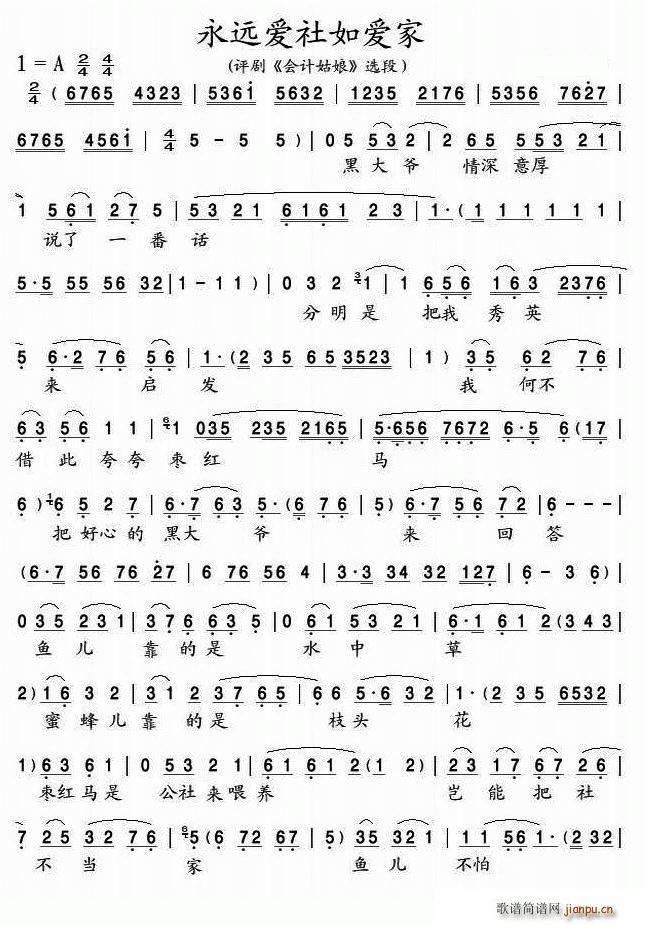 永远爱社如爱家
1=A 2/4 4/4
(评剧《会计姑娘》选段)
2/4 (6765 4323 | 5361 5632 | 1235 2176 | 5356 7627 |
6765 4561 | 4/4 5 - 5 5) | 05 532 2 | 2 65 553 21 |
黑大爷 情深意厚
1 561 27 5 | 53 21 6161 23 | 1·(1 1 1 1 1 1 |
说了一番话
5·5 55 56 32 | 1 - 1 1) | 0 3 2 1 | 1 656 163 2376 |
分明是 把我秀英
5 6·2 76 56 | 1·(2 35 65 3523 | 1) 35 62 76 |
来启发 我何不
63 56 1 1 | 1 035 235 2165 | 5·656 7672 6·5 6(17 |
借此夸夸枣红 马
6) 6 5 2 7 | 6·7 63 5·(6 76 | 5) 6·7 56 72 | 6 - - - |
把好心的黑大爷 来回答
(6·7 56 76 27 | 6 5 6 1 2 | 3·3 34 32 127 | 6 - 3 6) |
0 35 231 | 376 63 5 | 0 61 53 21 | 6·1 61 2(343 |
鱼儿靠的是水中草
2) 16 3 2 | 31 2 376 65 | 66 5·6 32 | 1·(2 35 6532 |
蜜蜂儿靠的是枝头花
1) 63 61 | 0 53 21 | 6161 2(12) | 23 167 67 5 |
枣红马是公社来喂养 岂能把社
7 25 32 76 | 5(6 72 67 | 5) 35 32 1 | 1 1 56 1·(232 |
不当家 鱼儿不怕
歌谱简谱网 jianpu.cn